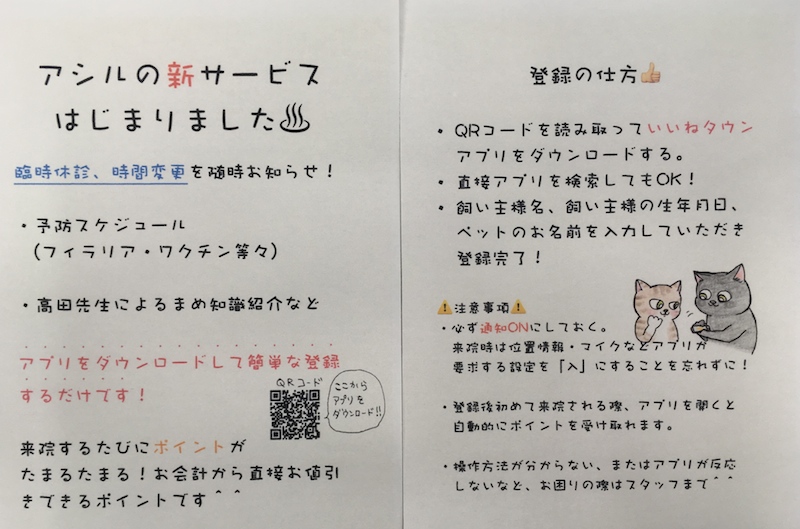 アシルの新サービス
はじまりました♨
臨時休診、時間変更を随時お知らせ！
・予防スケジュール
(フィラリア・ワクチン等々)
・高田先生によるまめ知識紹介など
アプリをダウンロードして簡単な登録
するだけです！
QRコード
ここから
アプリを
ダウンロード!!
来院するたびにポイントが
たまるたまる！お会計から直接お値引
きできるポイントです＾＾
登録の仕方👍
・QRコードを読み取っていいねタウン
アプリをダウンロードする。
・直接アプリを検索してもOK！
・飼い主様名、飼い主様の生年月日、
ペットのお名前を入力していただき
登録完了！
⚠注意事項⚠
・必ず通知ONにしておく。
来院時は位置情報・マイクなどアプリが
要求する設定を「入」にすることを忘れずに！
・登録後初めて来院される際、アプリを開くと
自動的にポイントを受け取れます。
・操作方法が分からない、またはアプリが反応
しないなど、お困りの際はスタッフまで＾＾